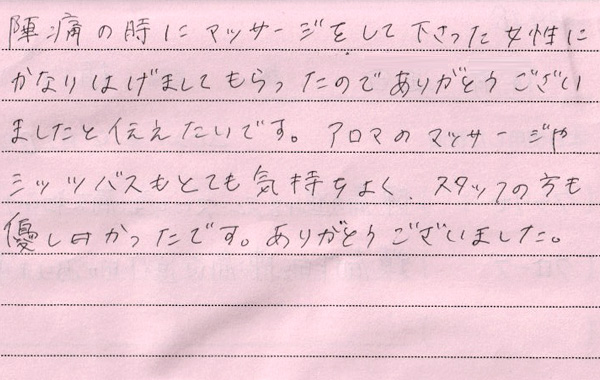 陣痛の時にマッサージをして下さった女性に
かなりはげましてもらったのでありがとうござい
ましたと伝えたいです。アロマのマッサージや
ミッツバスもとても気持ちよく、スタッフの方も
優しかったです。ありがとうございました。